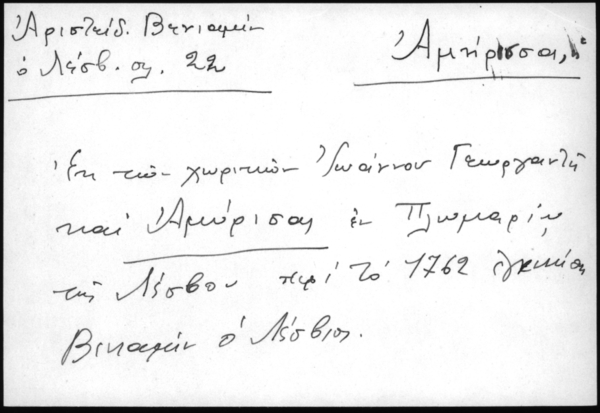 Ἀριστείδ. Βενιαμίν
ὁ Λέσβ. σελ. 22
Ἀμήρισσα, ἡ
Ἐκ τῶν χωρικῶν Ἰωάννου Γεωργαντῆ
καὶ Ἀμύρισας ἐν Πλωμαρίῳ
τῆς Λέσβου περὶ τὸ 1762 ἐγεννήθη
Βενιαμὶν ὁ Λέσβιος.